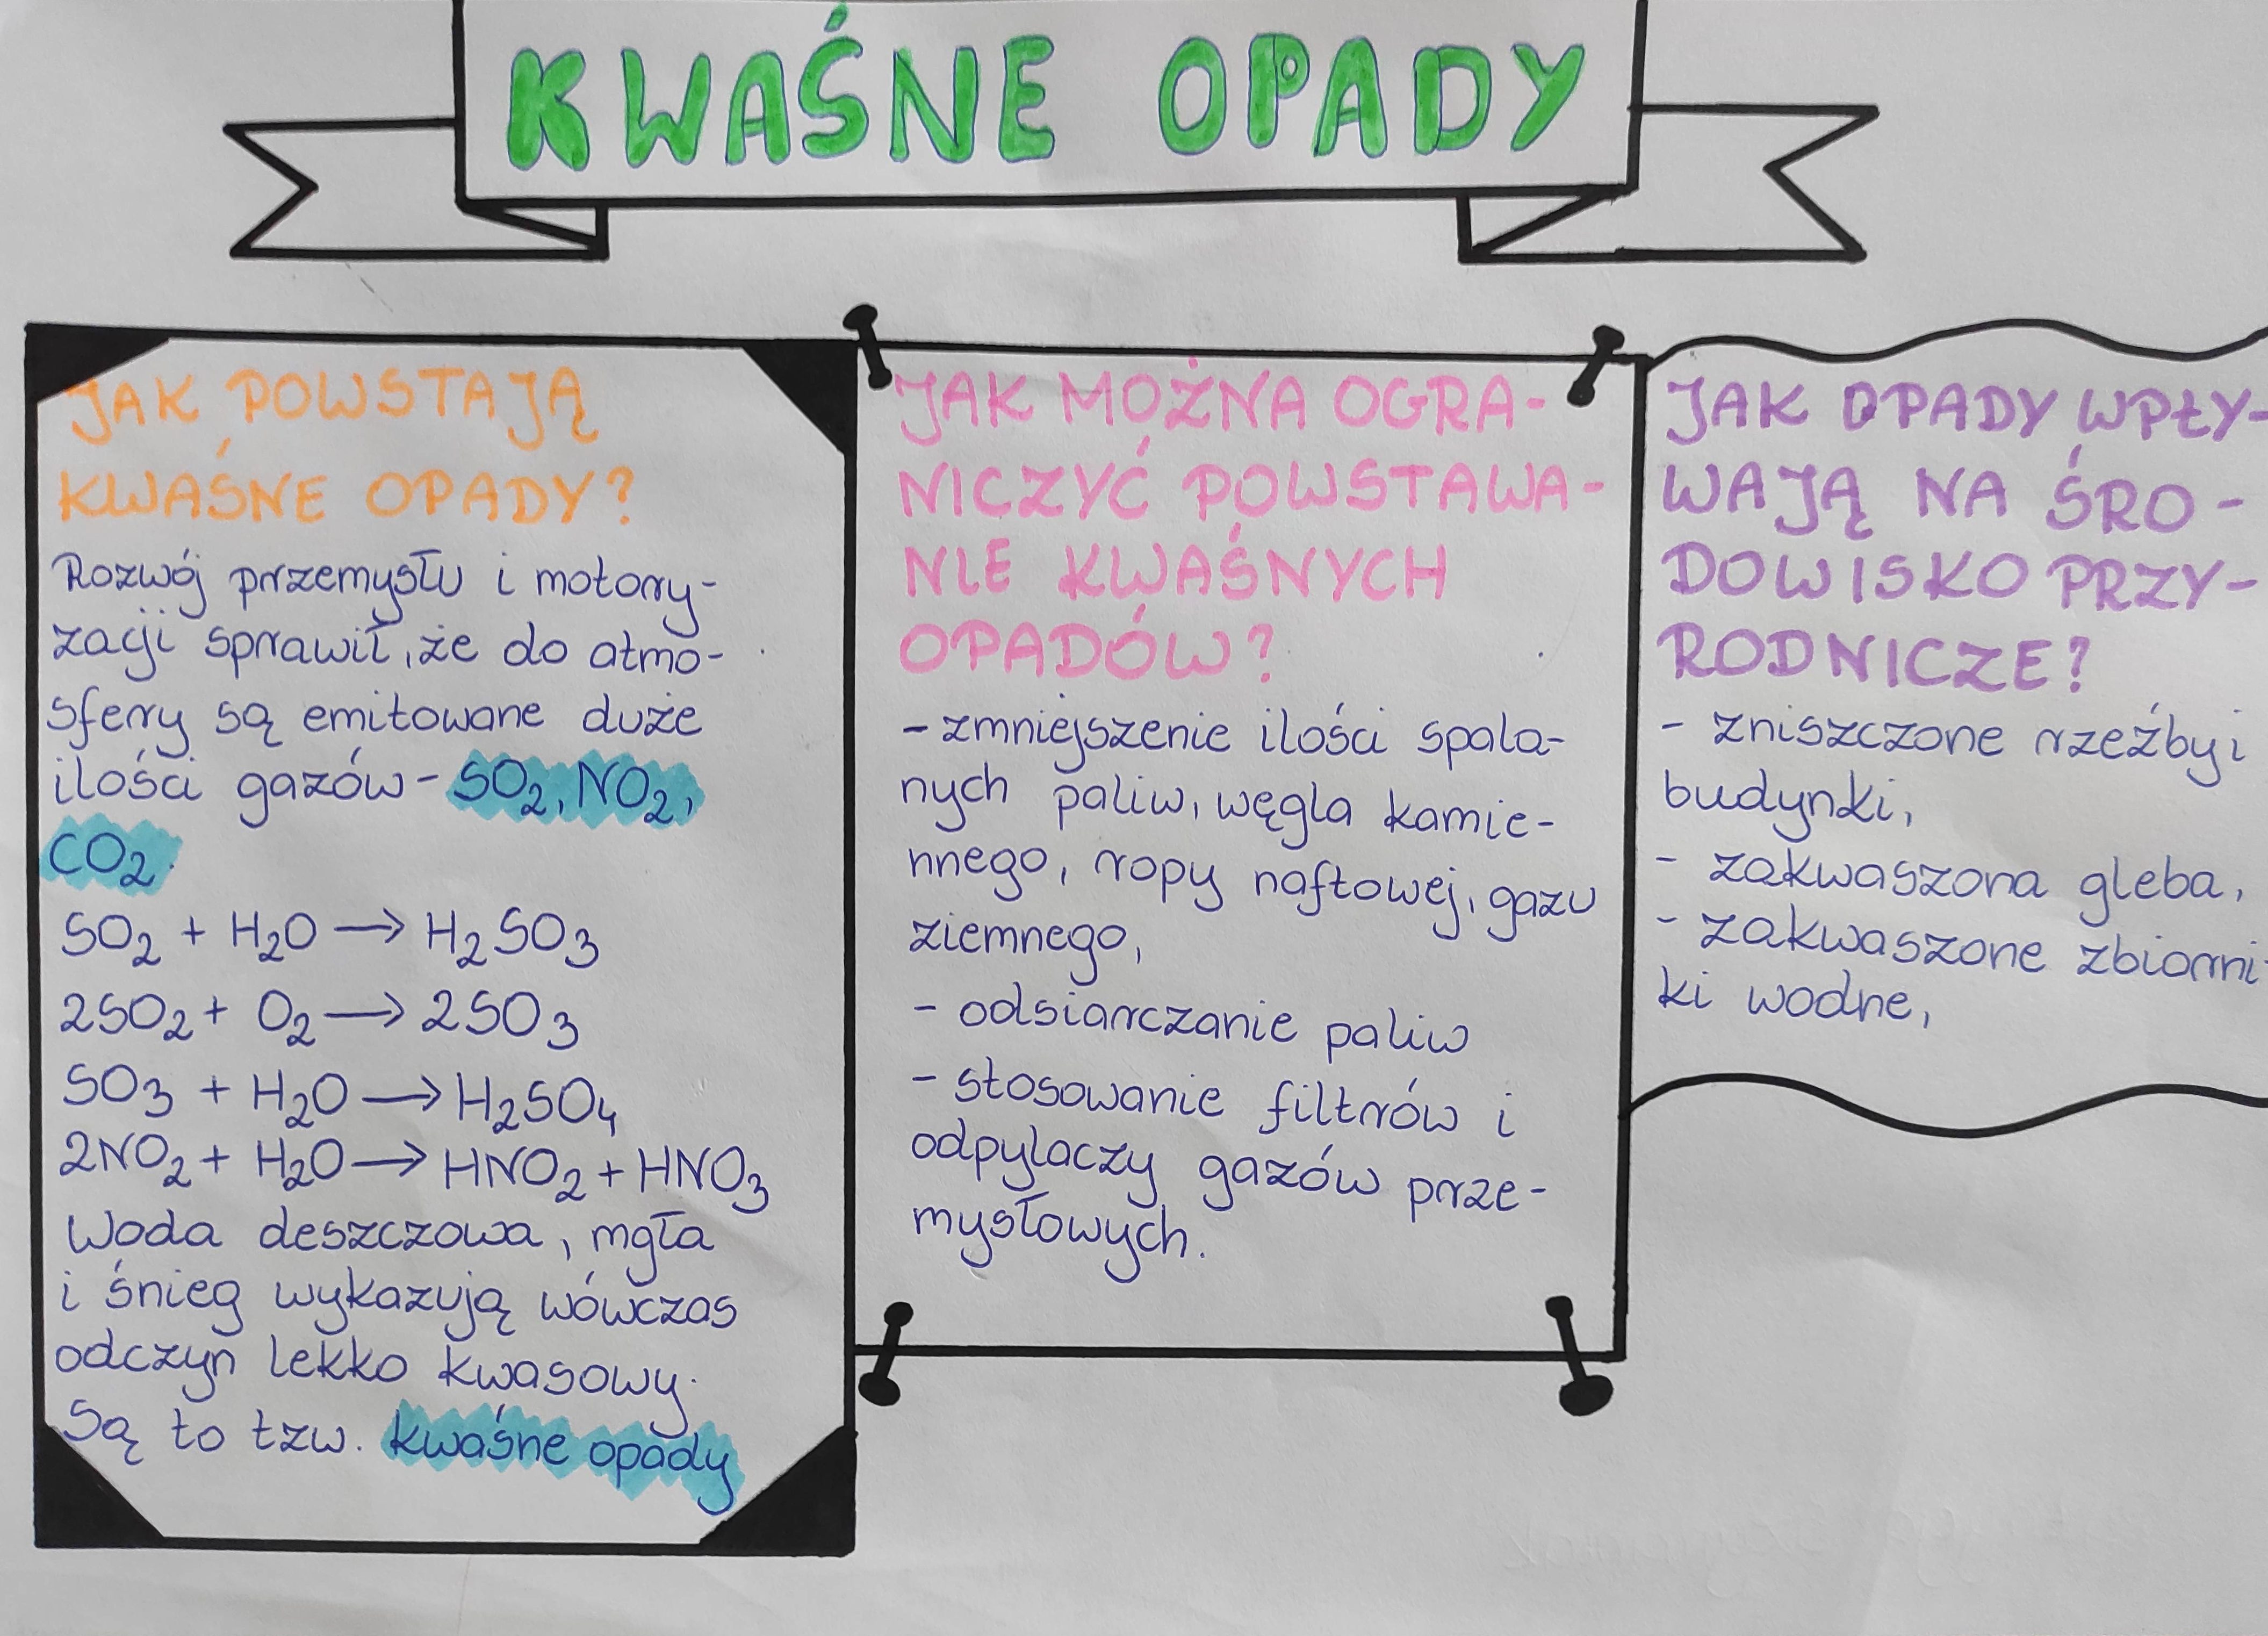 KWAŚNE OPADY
JAK POWSTAJĄ
KWAŚNE OPADY?
Rozwój przemysłu i motory-
zacji sprawił, że do atmo-
sfery są emitowane duże
ilości gazów - SO₂, NO₂,
CO₂.
SO₂ + H₂O → H₂SO₃
2SO₂ + O₂ → 2SO₃
SO₃ + H₂O → H₂SO₄
2NO₂ + H₂O → HNO₂ + HNO₃
Woda deszczowa, mgła
i śnieg wykazują wówczas
odczyn lekko kwasowy.
Są to tzw. kwaśne opady
JAK MOŻNA OGRA-
NICZYĆ POWSTAWA-
NIE KWAŚNYCH
OPADÓW?
- zmniejszenie ilości spala-
nych paliw, węgla kamie-
nnego, ropy naftowej, gazu
ziemnego,
- odsiarczanie paliw
- stosowanie filtrów i
odpylaczy gazów prze-
mysłowych.
JAK OPADY WPŁY-
WAJĄ NA ŚRO-
DOWISKO PRZY-
RODNICZE?
- zniszczone rzeźby i
budynki,
- zakwaszona gleba,
- zakwaszone zbiorni-
ki wodne,